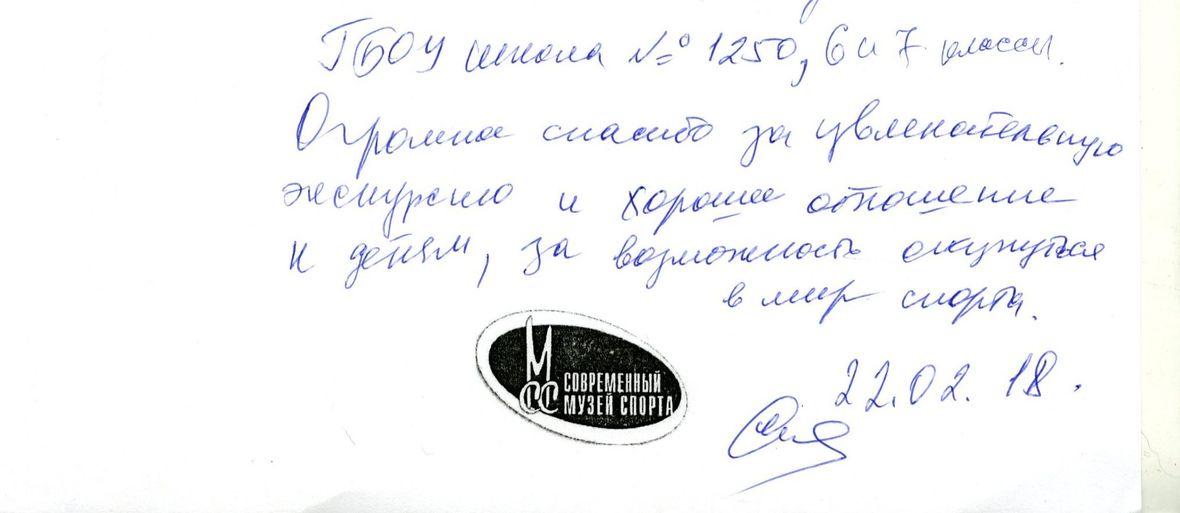 ГБОУ школа № 1250, 6 и 7 классы.
Огромное спасибо за увлекательную
экскурсию и хорошее отношение
к детям, за возможность окунуться
в мир спорта.
МСС СОВРЕМЕННЫЙ
МУЗЕЙ СПОРТА
22.02.18.